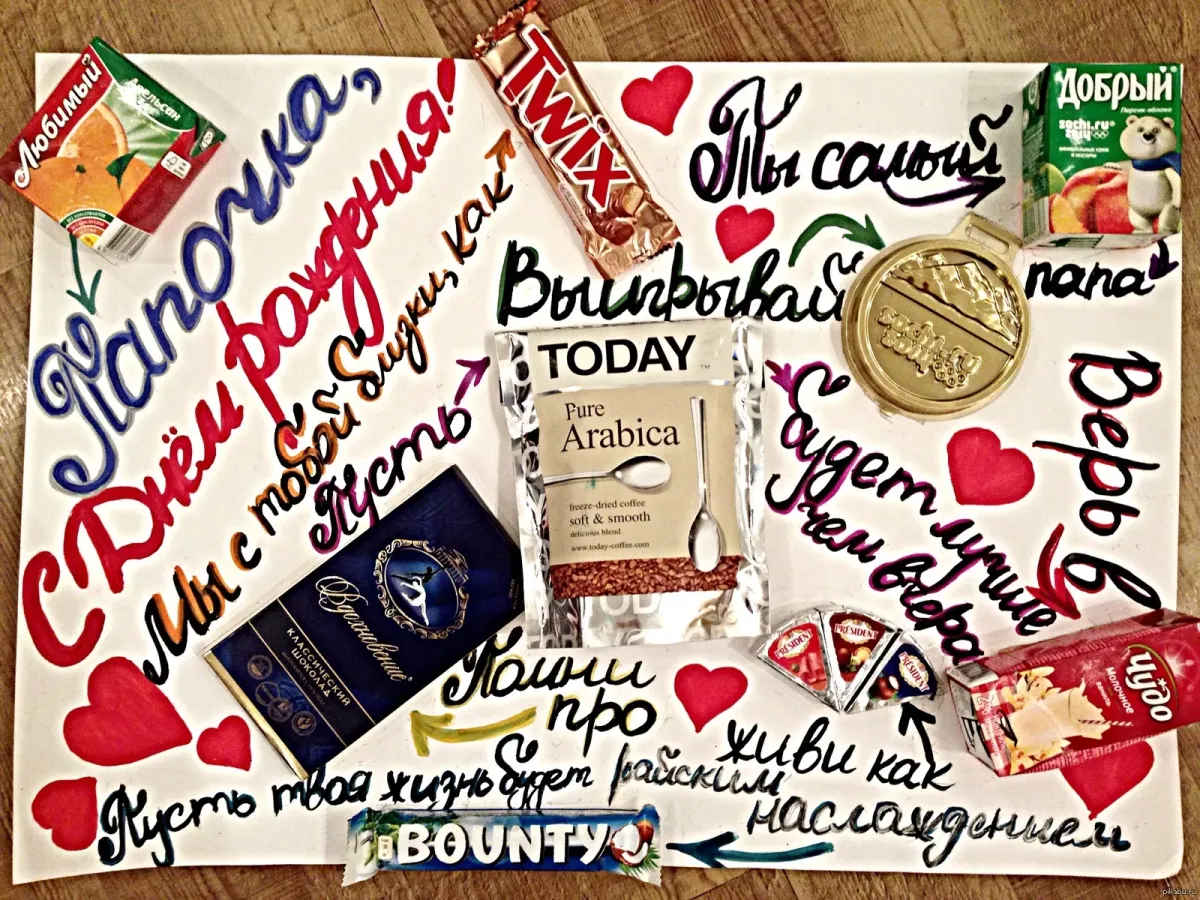 Любимый
Апельсин
Папочка,
С Днём рождения!
Мы с тобой близки, как
TWIX
Ты самый
Добрый
Персик-яблоко
sochi.ru
2014
папа
Выигрывай
sochi.ru
2014
Пусть
TODAY
TM
Pure
Arabica
freeze-dried coffee
soft & smooth
delicious blend
www.today-coffee.com
TODAY
будет лучше
чем вчера
Верь в
Чудо
Молочное
Помни
про
Вдохновение
КЛАССИЧЕСКИЙ
ШОКОЛАД
живи как
PRÉSIDENT
PRÉSIDENT
PRÉSIDENT
Пусть твоя жизнь будет райским
наслаждением
BOUNTY
pikabu.ru